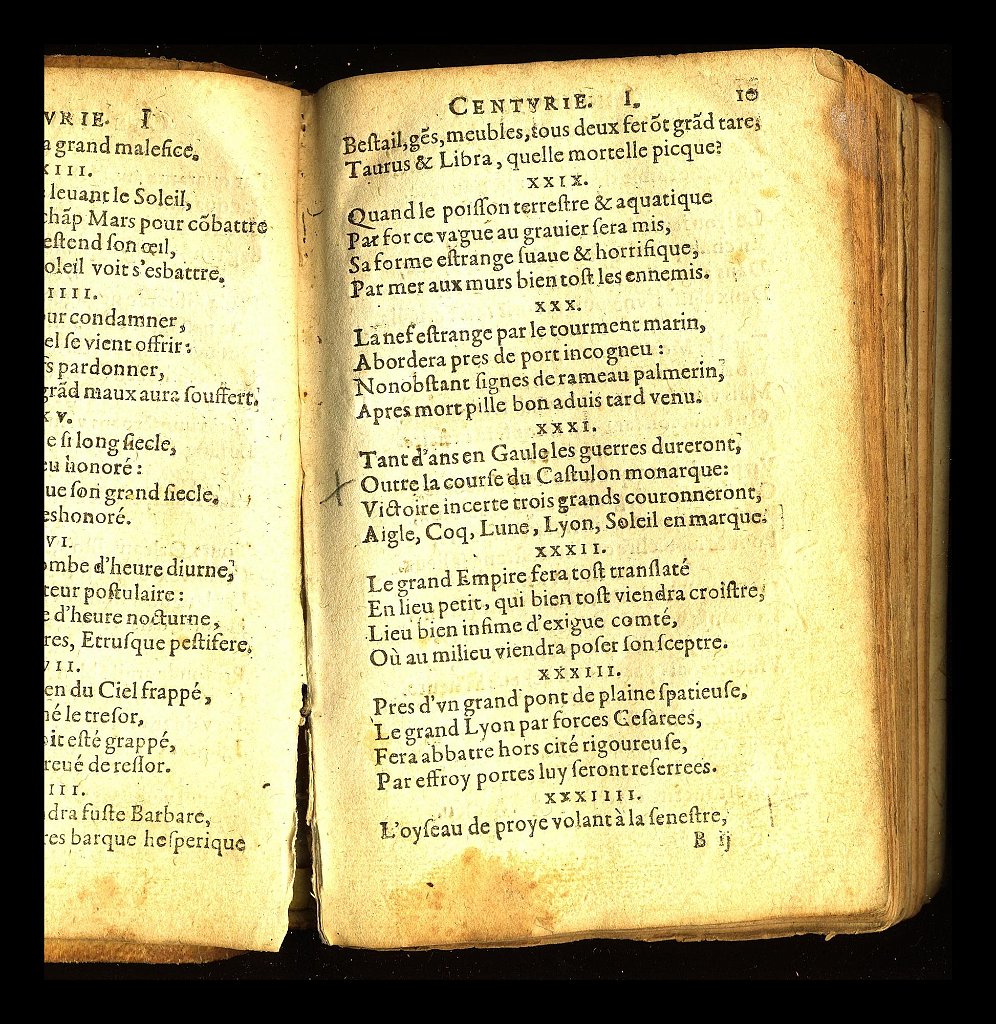 VRIE. I
a grand malefice.
XIII.
leuant le Soleil,
chãp Mars pour cõbattre
estend son œil,
oleil voit s'esbattre.
IIII.
ur condamner,
el se vient offrir:
fs pardonner,
grãd maux aura souffert.
XV.
e si long siecle,
eu honoré:
ue son grand siecle.
eshonoré.
VI.
ombe d'heure diurne,
teur postulaire:
e d'heure nocturne,
res, Etrusque pestifere.
VII.
en du Ciel frappé,
né le tresor,
oit esté grappé,
reué de ressor.
III.
dra fuste Barbare,
res barque hesperique
CENTVRIE. I. 10
Bestail, gẽs, meubles, tous deux ferõt grãd tare,
Taurus & Libra, quelle mortelle picque?
XXIX.
Quand le poisson terrestre & aquatique
Par force vague au grauier sera mis,
Sa forme estrange suaue & horrifique,
Par mer aux murs bien tost les ennemis.
XXX.
La nef estrange par le tourment marin,
Abordera pres de port incogneu :
Nonobstant signes de rameau palmerin,
Apres mort pille bon aduis tard venu.
XXXI.
Tant d'ans en Gaule les guerres dureront,
Outre la course du Castulon monarque:
Victoire incerte trois grands couronneront,
Aigle, Coq, Lune, Lyon, Soleil en marque.
XXXII.
Le grand Empire sera tost translaté
En lieu petit, qui bien tost viendra croistre,
Lieu bien infime d'exigue comté,
Où au milieu viendra poser son sceptre.
XXXIII.
Pres d'vn grand pont de plaine spatieuse,
Le grand Lyon par forces Cesarees,
Fera abbatre hors cité rigoureuse,
Par effroy portes luy seront reserrees.
XXXIIII.
L'oyseau de proye volant à la senestre,
B ij